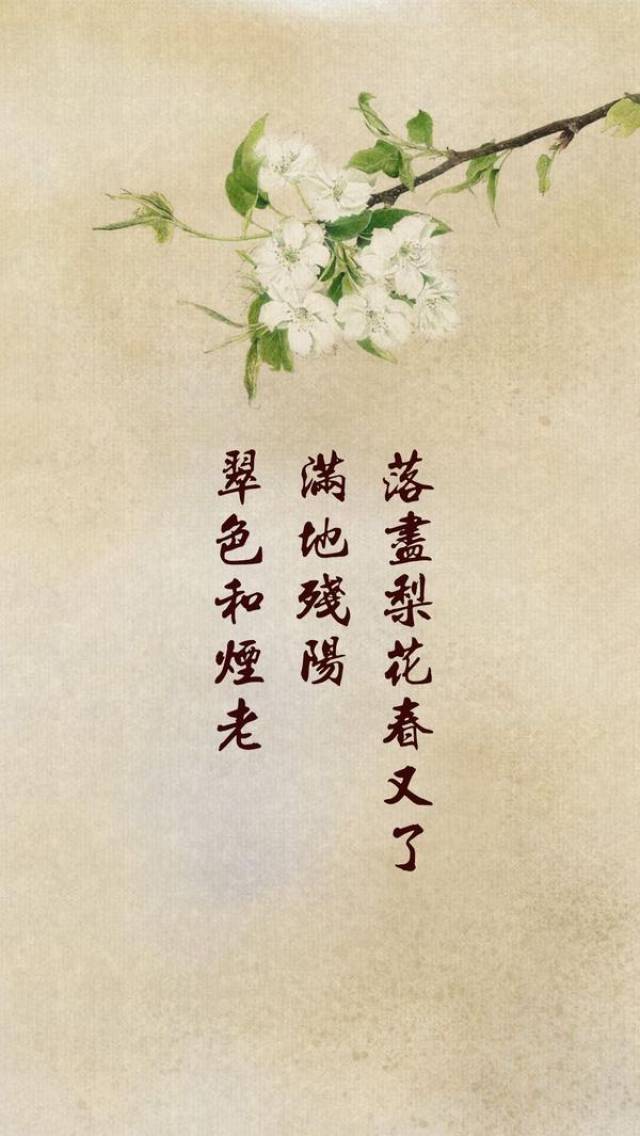 落盡梨花春又了
滿地殘陽
翠色和煙老